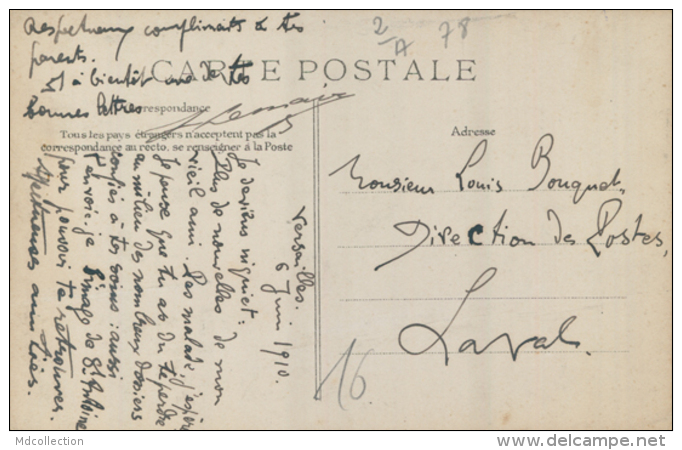 2
A
78
CARTE POSTALE
Correspondance
Tous les pays étrangers n'acceptent pas la
correspondance au recto, se renseigner à la Poste
Adresse
Versailles.
6 Juin 1910.
Je deviens inquiet :
Plus de nouvelles de mon
vieil ami. Pas malade, j'espère
Je pense que tu as du te perdre
au milieu des nombreux dossiers
confiés à tes soins : aussi
t'envoie-je l'image de St Antoine
pour pouvoir te retrouver.
Affectueuses amitiés.
Respectueux compliments à tes
parents.
Et à bientôt une de tes
bonnes lettres
Monsieur Louis Bouquet,
Direction des Postes,
Laval.
16
Mdcollection
delcampe.net